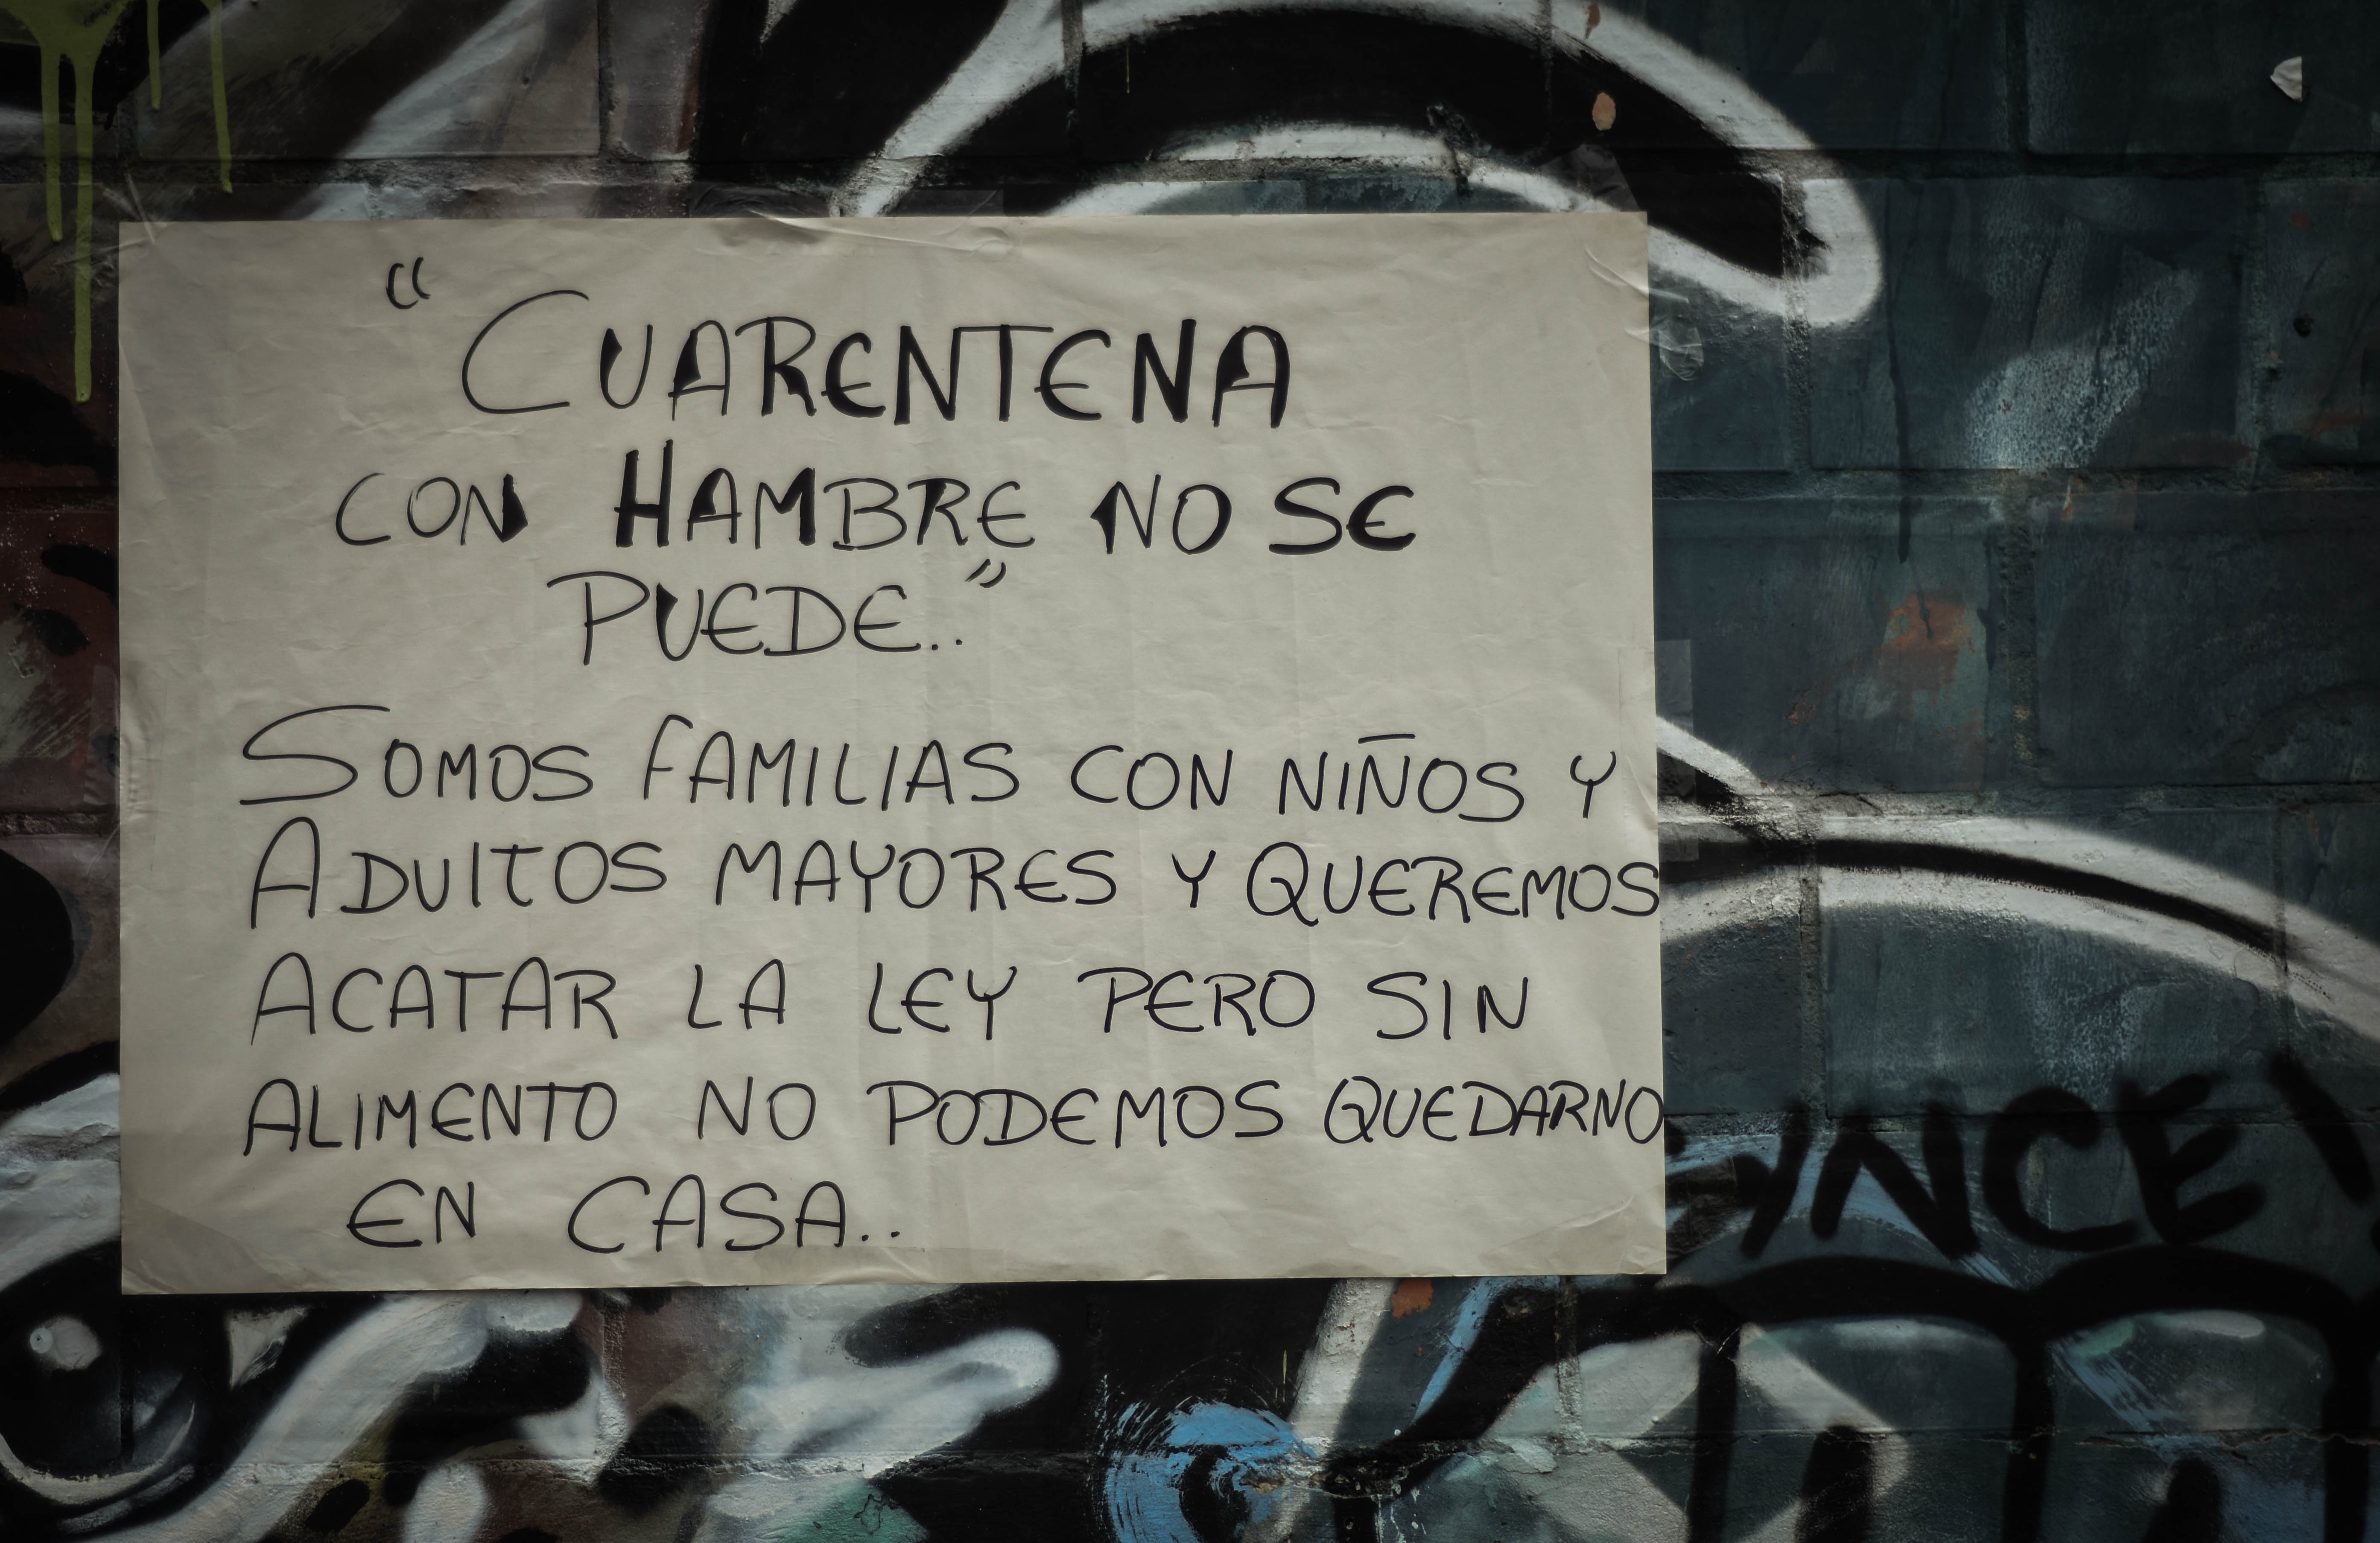 “CUARENTENA
CON HAMBRE NO SE
PUEDE..”
SOMOS FAMILIAS CON NIÑOS Y
ADULTOS MAYORES Y QUEREMOS
ACATAR LA LEY PERO SIN
ALIMENTO NO PODEMOS QUEDARNO
EN CASA..